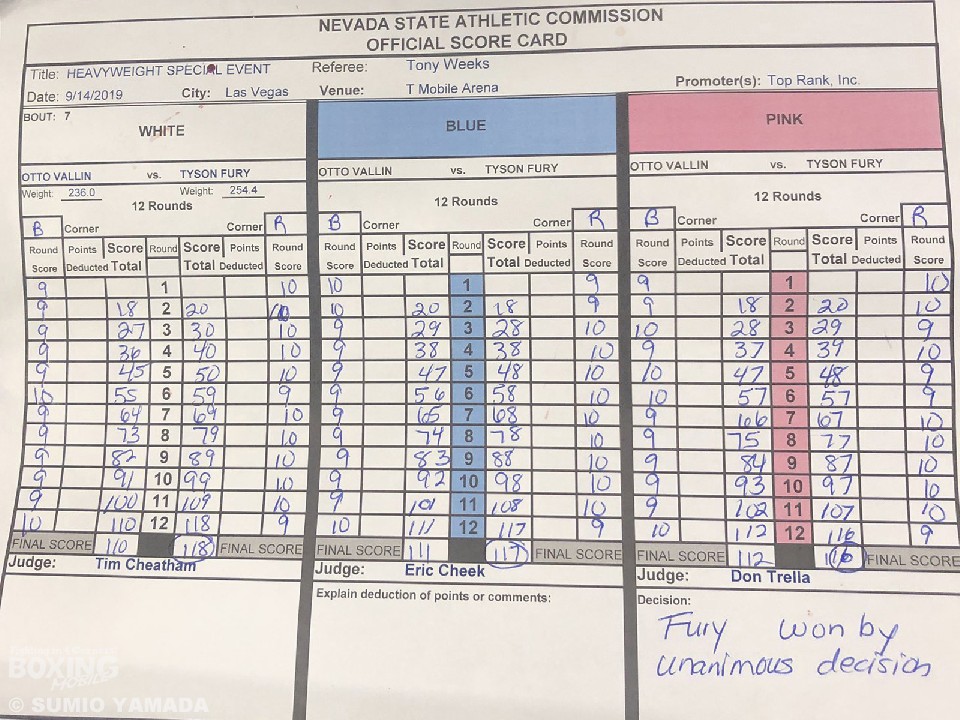 NEVADA STATE ATHLETIC COMMISSION
OFFICIAL SCORE CARD
Title: HEAVYWEIGHT SPECIAL EVENT Referee: Tony Weeks
Date: 9/14/2019 City: Las Vegas Venue: T Mobile Arena Promoter(s): Top Rank, Inc.
BOUT: 7
WHITE BLUE PINK
OTTO VALLIN vs. TYSON FURY OTTO VALLIN vs. TYSON FURY OTTO VALLIN vs. TYSON FURY
Weight: 236.0 Weight: 254.4
12 Rounds 12 Rounds 12 Rounds
B Corner Corner R B Corner Corner R B Corner Corner R
Round Points Score Round Score Points Round Round Points Score Round Score Points Round Round Points Score Round Score Points Round
Score Deducted Total Total Deducted Score Score Deducted Total Total Deducted Score Score Deducted Total Total Deducted Score
9 1 10 10 1 9 9 1 10
9 18 2 20 10 10 20 2 18 9 9 18 2 20 10
9 27 3 30 10 9 29 3 28 10 10 28 3 29 9
9 36 4 40 10 9 38 4 38 10 9 37 4 39 10
9 45 5 50 10 9 47 5 48 10 10 47 5 48 9
10 55 6 59 9 9 56 6 58 10 10 57 6 57 9
9 64 7 69 10 9 65 7 68 10 9 66 7 67 10
9 73 8 79 10 9 74 8 78 10 9 75 8 77 10
9 82 9 89 10 9 83 9 88 10 9 84 9 87 10
9 91 10 99 10 9 92 10 98 10 9 93 10 97 10
9 100 11 109 10 9 101 11 108 10 9 102 11 107 10
10 110 12 118 9 10 111 12 117 9 10 112 12 116 9
FINAL SCORE 110 118 FINAL SCORE FINAL SCORE 111 117 FINAL SCORE FINAL SCORE 112 116 FINAL SCORE
Judge: Tim Cheatham Judge: Eric Cheek Judge: Don Trella
Explain deduction of points or comments: Decision:
Fury won by
unanimous decision
BOXING
© SUMIO YAMADA